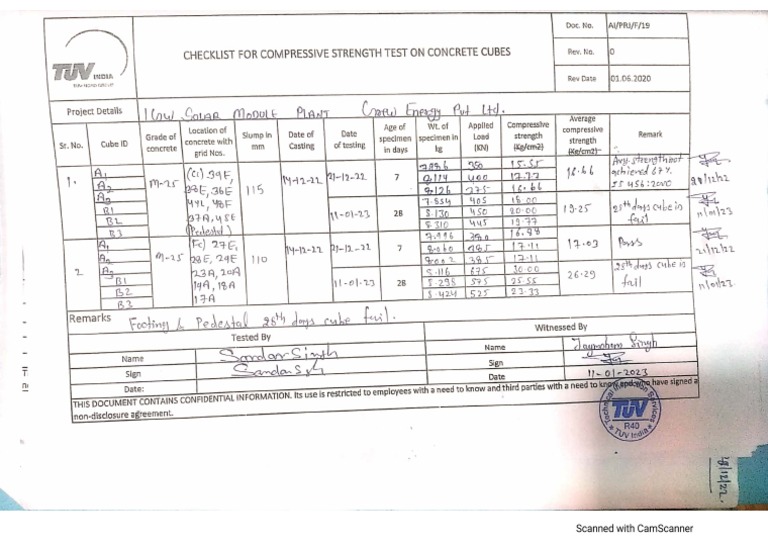 TUV INDIA
TUV NORD GROUP
CHECKLIST FOR COMPRESSIVE STRENGTH TEST ON CONCRETE CUBES
Doc. No. AI/PRJ/F/19
Rev. No. 0
Rev Date 01.06.2020
Project Details 1GW SOLAR MODULE PLANT Energy Pvt Ltd.
Sr. No. Cube ID Grade of concrete Location of concrete with grid Nos. Slump in mm Date of Casting Date of testing Age of specimen in days Wt. of specimen in kg Applied Load (KN) Compressive strength (Kg/cm2) Average compressive strength (Kg/cm2) Remark
1. A1 M-25 (Ci) 39E, 115 14-12-22 21-12-22 7 350 15.55 16.66 Avg. strength not achieved 67% IS 456:2000
A2 36E 8.114 400 17.77 21/12/22
A3 44L, 48F 8.126 375 16.66
B1 37A, 45E 11-01-23 28 405 18.00 19.25 28th days cube is fail
B2 (Pedestal) 8.130 450 20.00 11/01/23
B3 8.310 445 19.77
2 A1 M-25 (Fc) 27E, 110 14-12-22 21-12-22 7 7.996 380 16.88 17.03 Pass
A2 28E, 29E 8.060 385 17.11 21/12/22
A3 23A, 20A 8.002 385 17.11
B1 19A, 18A 11-01-23 28 8.116 675 30.00 26.29 28th days cube is fail
B2 17A 8.298 575 25.55 11/01/23
B3 8.424 525 23.33
Remarks Footing & Pedestal 28th days cube fail.
Tested By Witnessed By
Name Sandar Singh Name Jagmohan Singh
Sign Sign
Date: Date 11-01-2023
THIS DOCUMENT CONTAINS CONFIDENTIAL INFORMATION. Its use is restricted to employees with a need to know and third parties with a need to know and who have signed a
non-disclosure agreement.
TUV
R40
TUV India
28/12/22.
Scanned with CamScanner